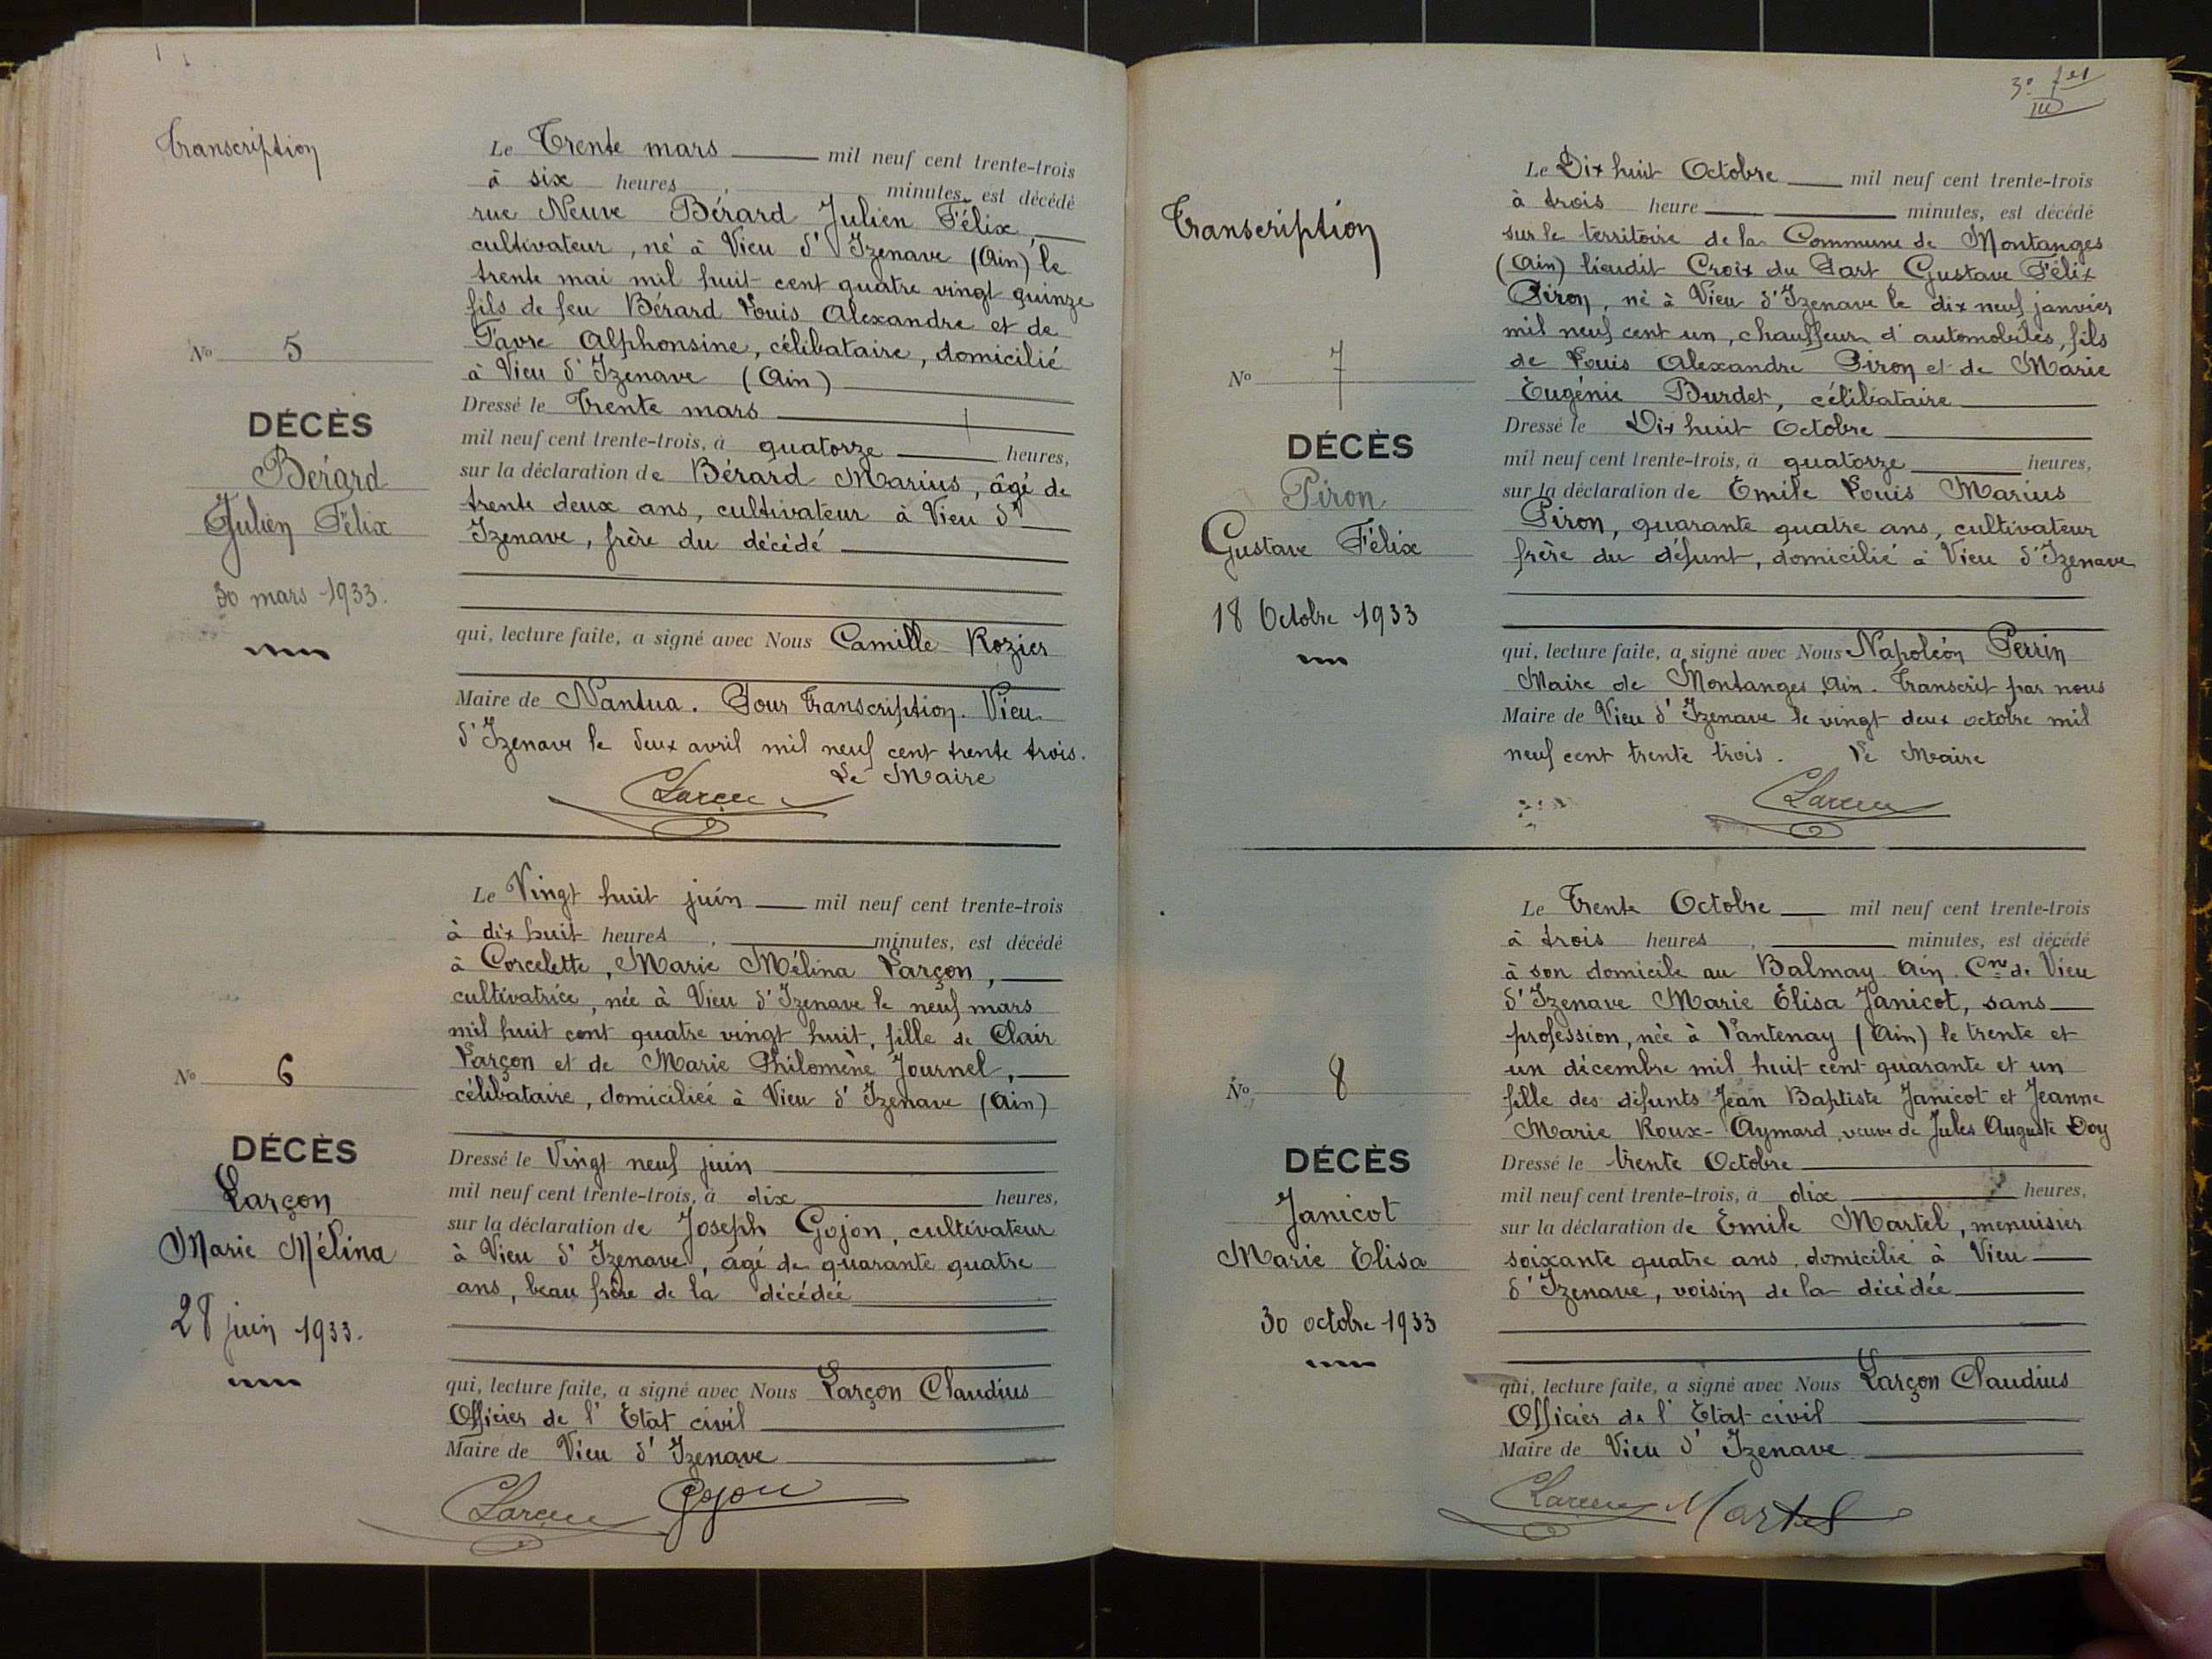 Transcription
Le Trente mars mil neuf cent trente-trois
à six heures, minutes, est décédé
rue Neuve Bérard Julien Félix
cultivateur, né à Vieu d'Izenave (Ain) le
trente mai mil huit cent quatre vingt quinze
fils de feu Bérard Louis Alexandre et de
Favre Alphonsine, célibataire, domicilié
à Vieu d'Izenave (Ain)
Dressé le Trente mars
mil neuf cent trente-trois, à quatorze heures,
sur la déclaration de Bérard Marius, âgé de
trente deux ans, cultivateur à Vieu d'
Izenave, frère du décédé
qui, lecture faite, a signé avec Nous Camille Rozier
Maire de Nantua. Pour Transcription. Vieu
d'Izenave le deux avril mil neuf cent trente trois.
Le Maire
CLarçon
No 5
DÉCÈS
Berard
Julien Félix
30 mars 1933.
Le Vingt huit juin mil neuf cent trente-trois
à dix huit heures, minutes, est décédé
à Corcelette, Marie Mélina Larçon,
cultivatrice, née à Vieu d'Izenave le neuf mars
mil huit cent quatre vingt huit, fille de Clair
Larçon et de Marie Philomène Journel,
célibataire, domiciliée à Vieu d'Izenave (Ain)
Dressé le Vingt neuf juin
mil neuf cent trente-trois, à dix heures,
sur la déclaration de Joseph Gojon, cultivateur
à Vieu d'Izenave, âgé de quarante quatre
ans, beau frère de la décédée
qui, lecture faite, a signé avec Nous Larçon Claudius
Officier de l'Etat civil
Maire de Vieu d'Izenave
CLarçon Gojon
No 6
DÉCÈS
Larçon
Marie Mélina
28 juin 1933.
Transcription
Le Dix huit Octobre mil neuf cent trente-trois
à trois heure minutes, est décédé
sur le territoire de la Commune de Montanges
(Ain) lieudit Croix du Dart Gustave Félix
Piron, né à Vieu d'Izenave le dix neuf janvier
mil neuf cent un, chauffeur d'automobiles, fils
de Louis Alexandre Piron et de Marie
Eugénie Burdet, célibataire
Dressé le Dix huit Octobre
mil neuf cent trente-trois, à quatorze heures,
sur la déclaration de Emile Louis Marius
Piron, quarante quatre ans, cultivateur
frère du défunt, domicilié à Vieu d'Izenave
qui, lecture faite, a signé avec Nous Napoléon Perrin
Maire de Montanges Ain. Transcrit par nous
Maire de Vieu d'Izenave le vingt deux octobre mil
neuf cent trente trois. Le Maire
CLarçon
No 7
DÉCÈS
Piron
Gustave Félix
18 Octobre 1933
Le Trente Octobre mil neuf cent trente-trois
à trois heures, minutes, est décédé
à son domicile au Balmay Ain Cne de Vieu
d'Izenave Marie Élisa Janicot, sans
profession, née à Lantenay (Ain) le trente et
un décembre mil huit cent quarante et un
fille des défunts Jean Baptiste Janicot et Jeanne
Marie Roux-Aymard, veuve de Jules Auguste Doy
Dressé le trente Octobre
mil neuf cent trente-trois, à dix heures,
sur la déclaration de Emile Martel, menuisier
soixante quatre ans, domicilié à Vieu
d'Izenave, voisin de la décédée
qui, lecture faite, a signé avec Nous Larçon Claudius
Officier de l'Etat civil
Maire de Vieu d'Izenave
CLarçon Martel
No 8
DÉCÈS
Janicot
Marie Elisa
30 octobre 1933